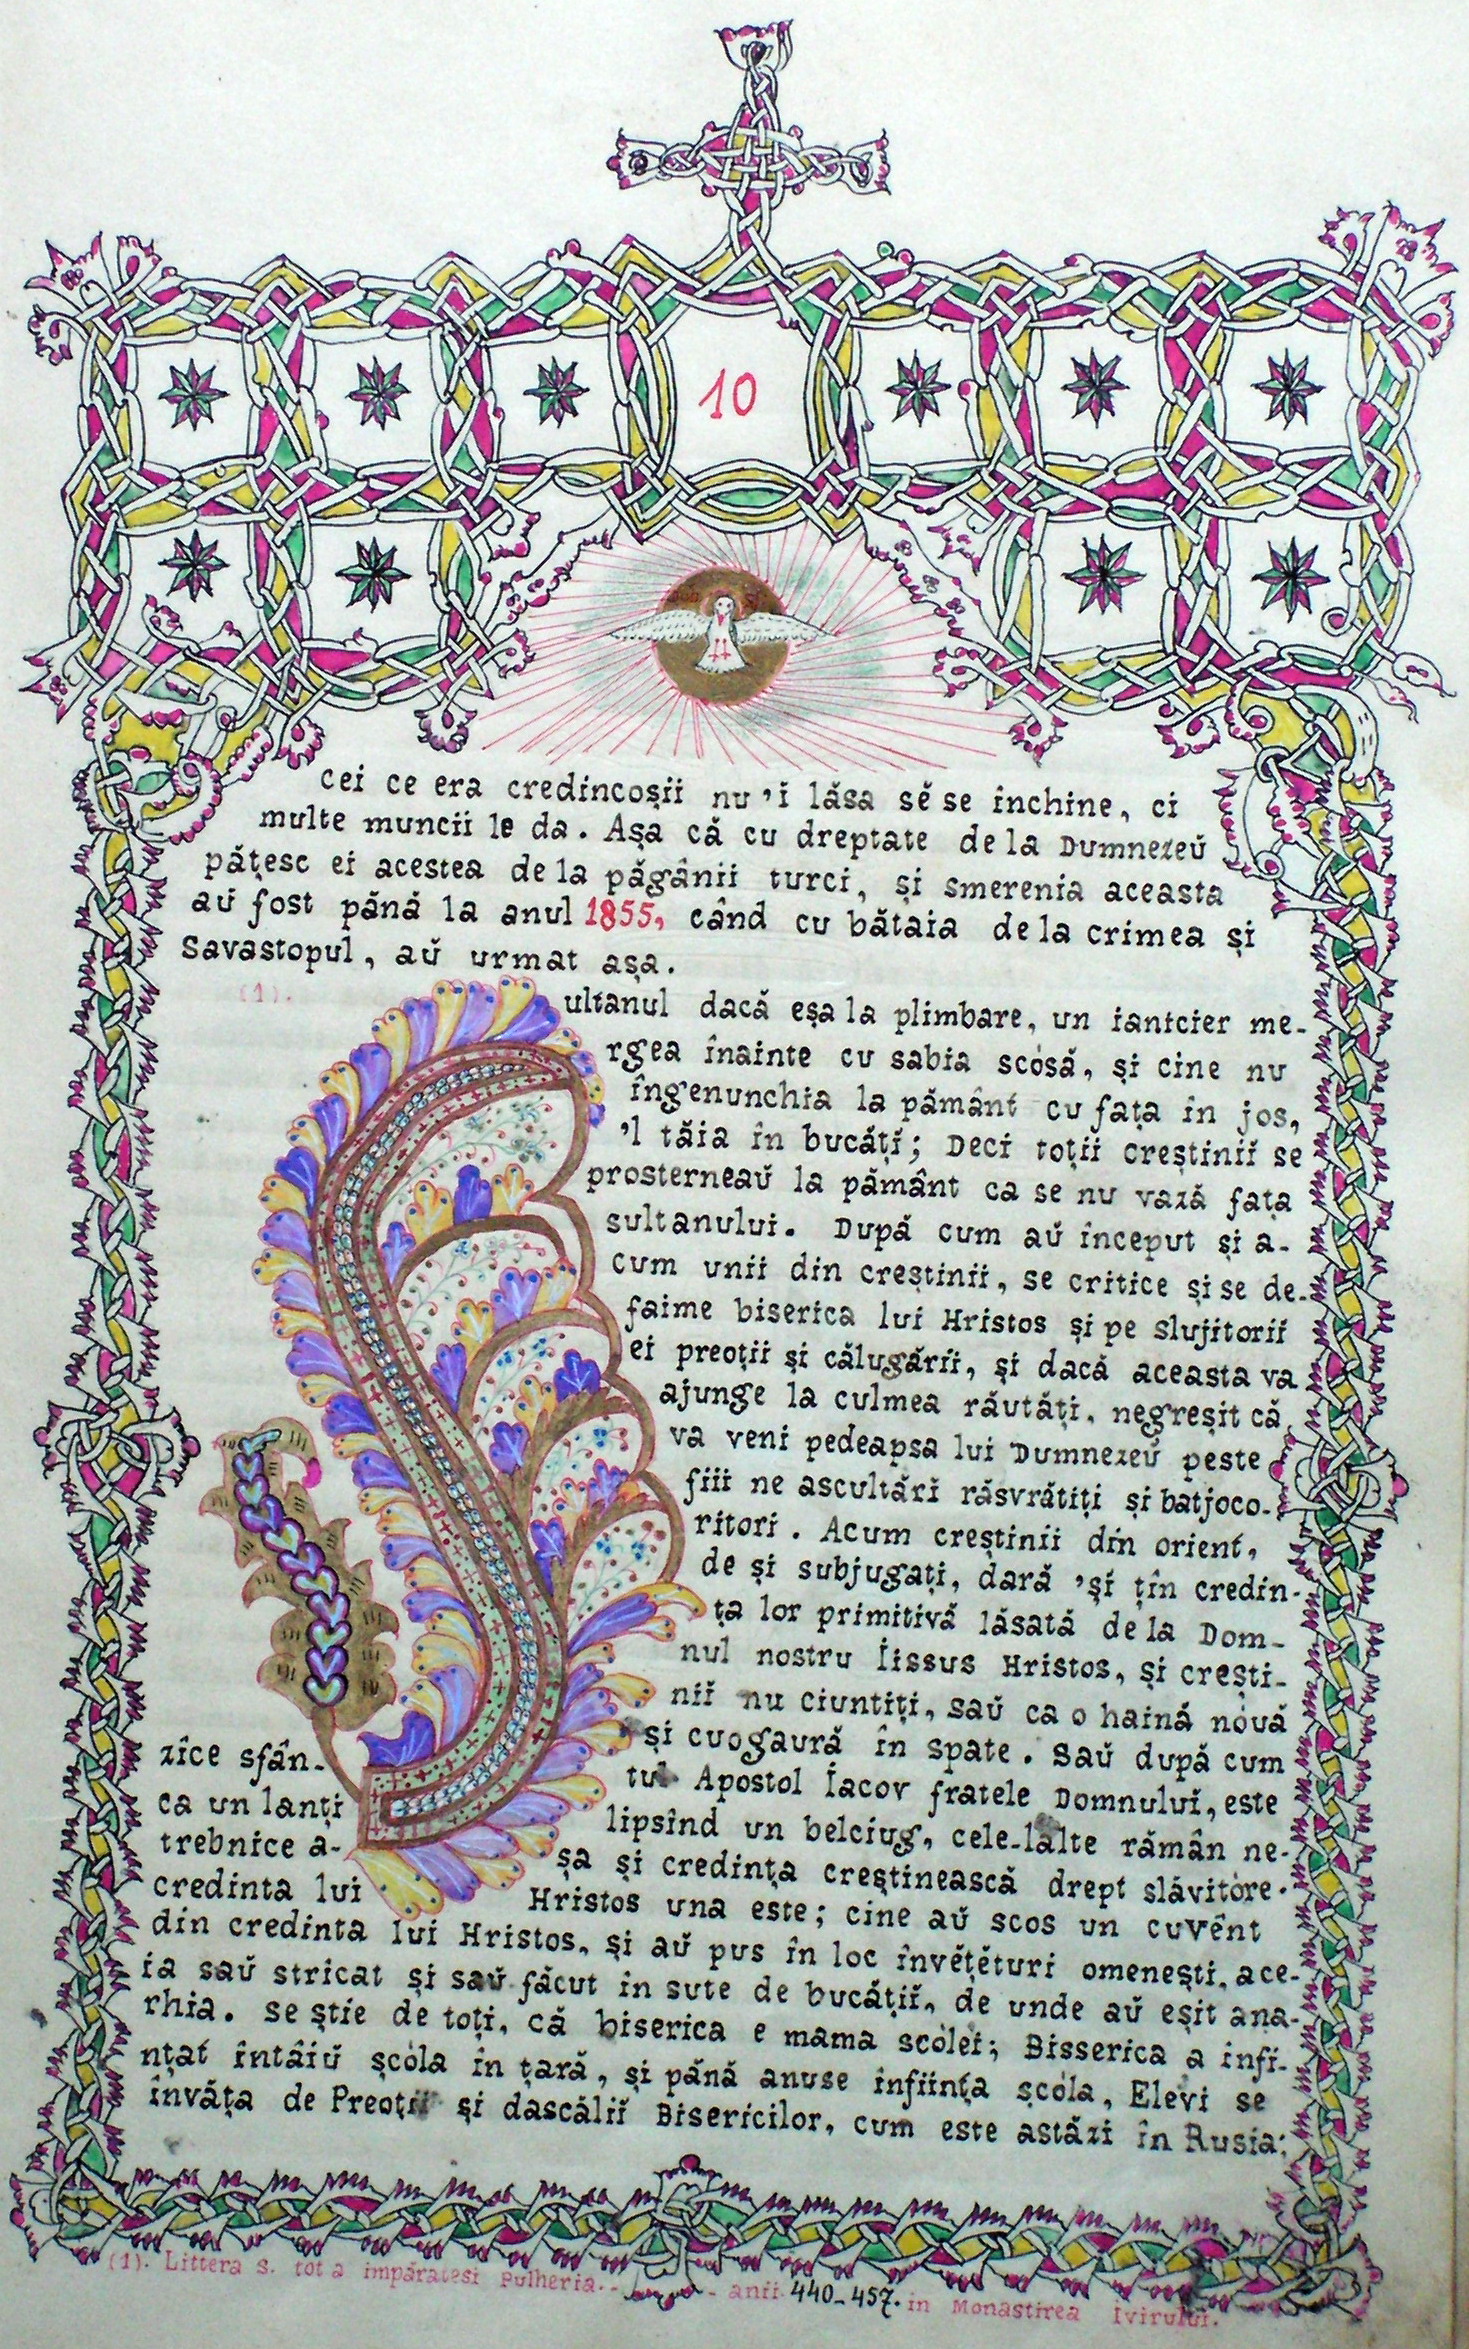 10
cei ce era credincoșii nu 'i lăsa sĕ se închine, ci
multe muncii le da. Așa că cu dreptate de la Dumnezeŭ
pățesc ei acestea de la păgânii turci, și smerenia aceasta
aŭ fost până la anul 1855, când cu bătaia de la crimea și
Savastopul, aŭ urmat așa.
(1).
ultanul dacă eșa la plimbare, un ianicier me-
rgea înainte cu sabia scósă, și cine nu
îngenunchia la pământ cu fața în jos,
'l tăia în bucățĭ; Deci toții creștiniĭ se
prosterneaŭ la pământ ca se nu vază fața
sultanului. După cum aŭ început și a-
cum unii din creștinii, se critice și se de-
faime biserica lui Hristos și pe slujitoriĭ
ei preoții și călugării, și dacă aceasta va
ajunge la culmea răutăți, negreșit că
va veni pedeapsa lui Dumnezeŭ peste
fiii ne ascultări răsvrătiți și batjoco-
ritori. Acum creștinii din orient,
de și subjugați, dară 'și țîn credin-
ța lor primitivă lăsată de la Dom-
nul nostru Iissus Hristos, și crești-
niĭ nu ciuntiți, saŭ ca o haină nóuă
și cuogaură în spate. Saŭ după cum
zice sfân- tul Apostol Iacov fratele Domnului, este
ca un lanți lipsind un belciug, cele-lalte rămân ne-
trebnice a- șa și credința creștinească drept slăvitóre.
credinta lui Hristos una este; cine aŭ scos un cuvênt
din credinta lui Hristos, și aŭ pus în loc învĕțĕturi omenești, ace-
ia saŭ stricat și saŭ făcut în sute de bucățiĭ, de unde aŭ eșit ana-
rhia. se știe de toți, că biserica e mama scólei; Bisserica a infi-
nțat întâiŭ șcóla în țară, și până anuse înființa șcóla, Elevi se
învăța de Preoții și dascăliĭ Bisericilor, cum este astăzi în Rusia;
(1). Littera s. tot a impăratesi Pulheria. - - anii 440-457. in Monastirea Ivirului.